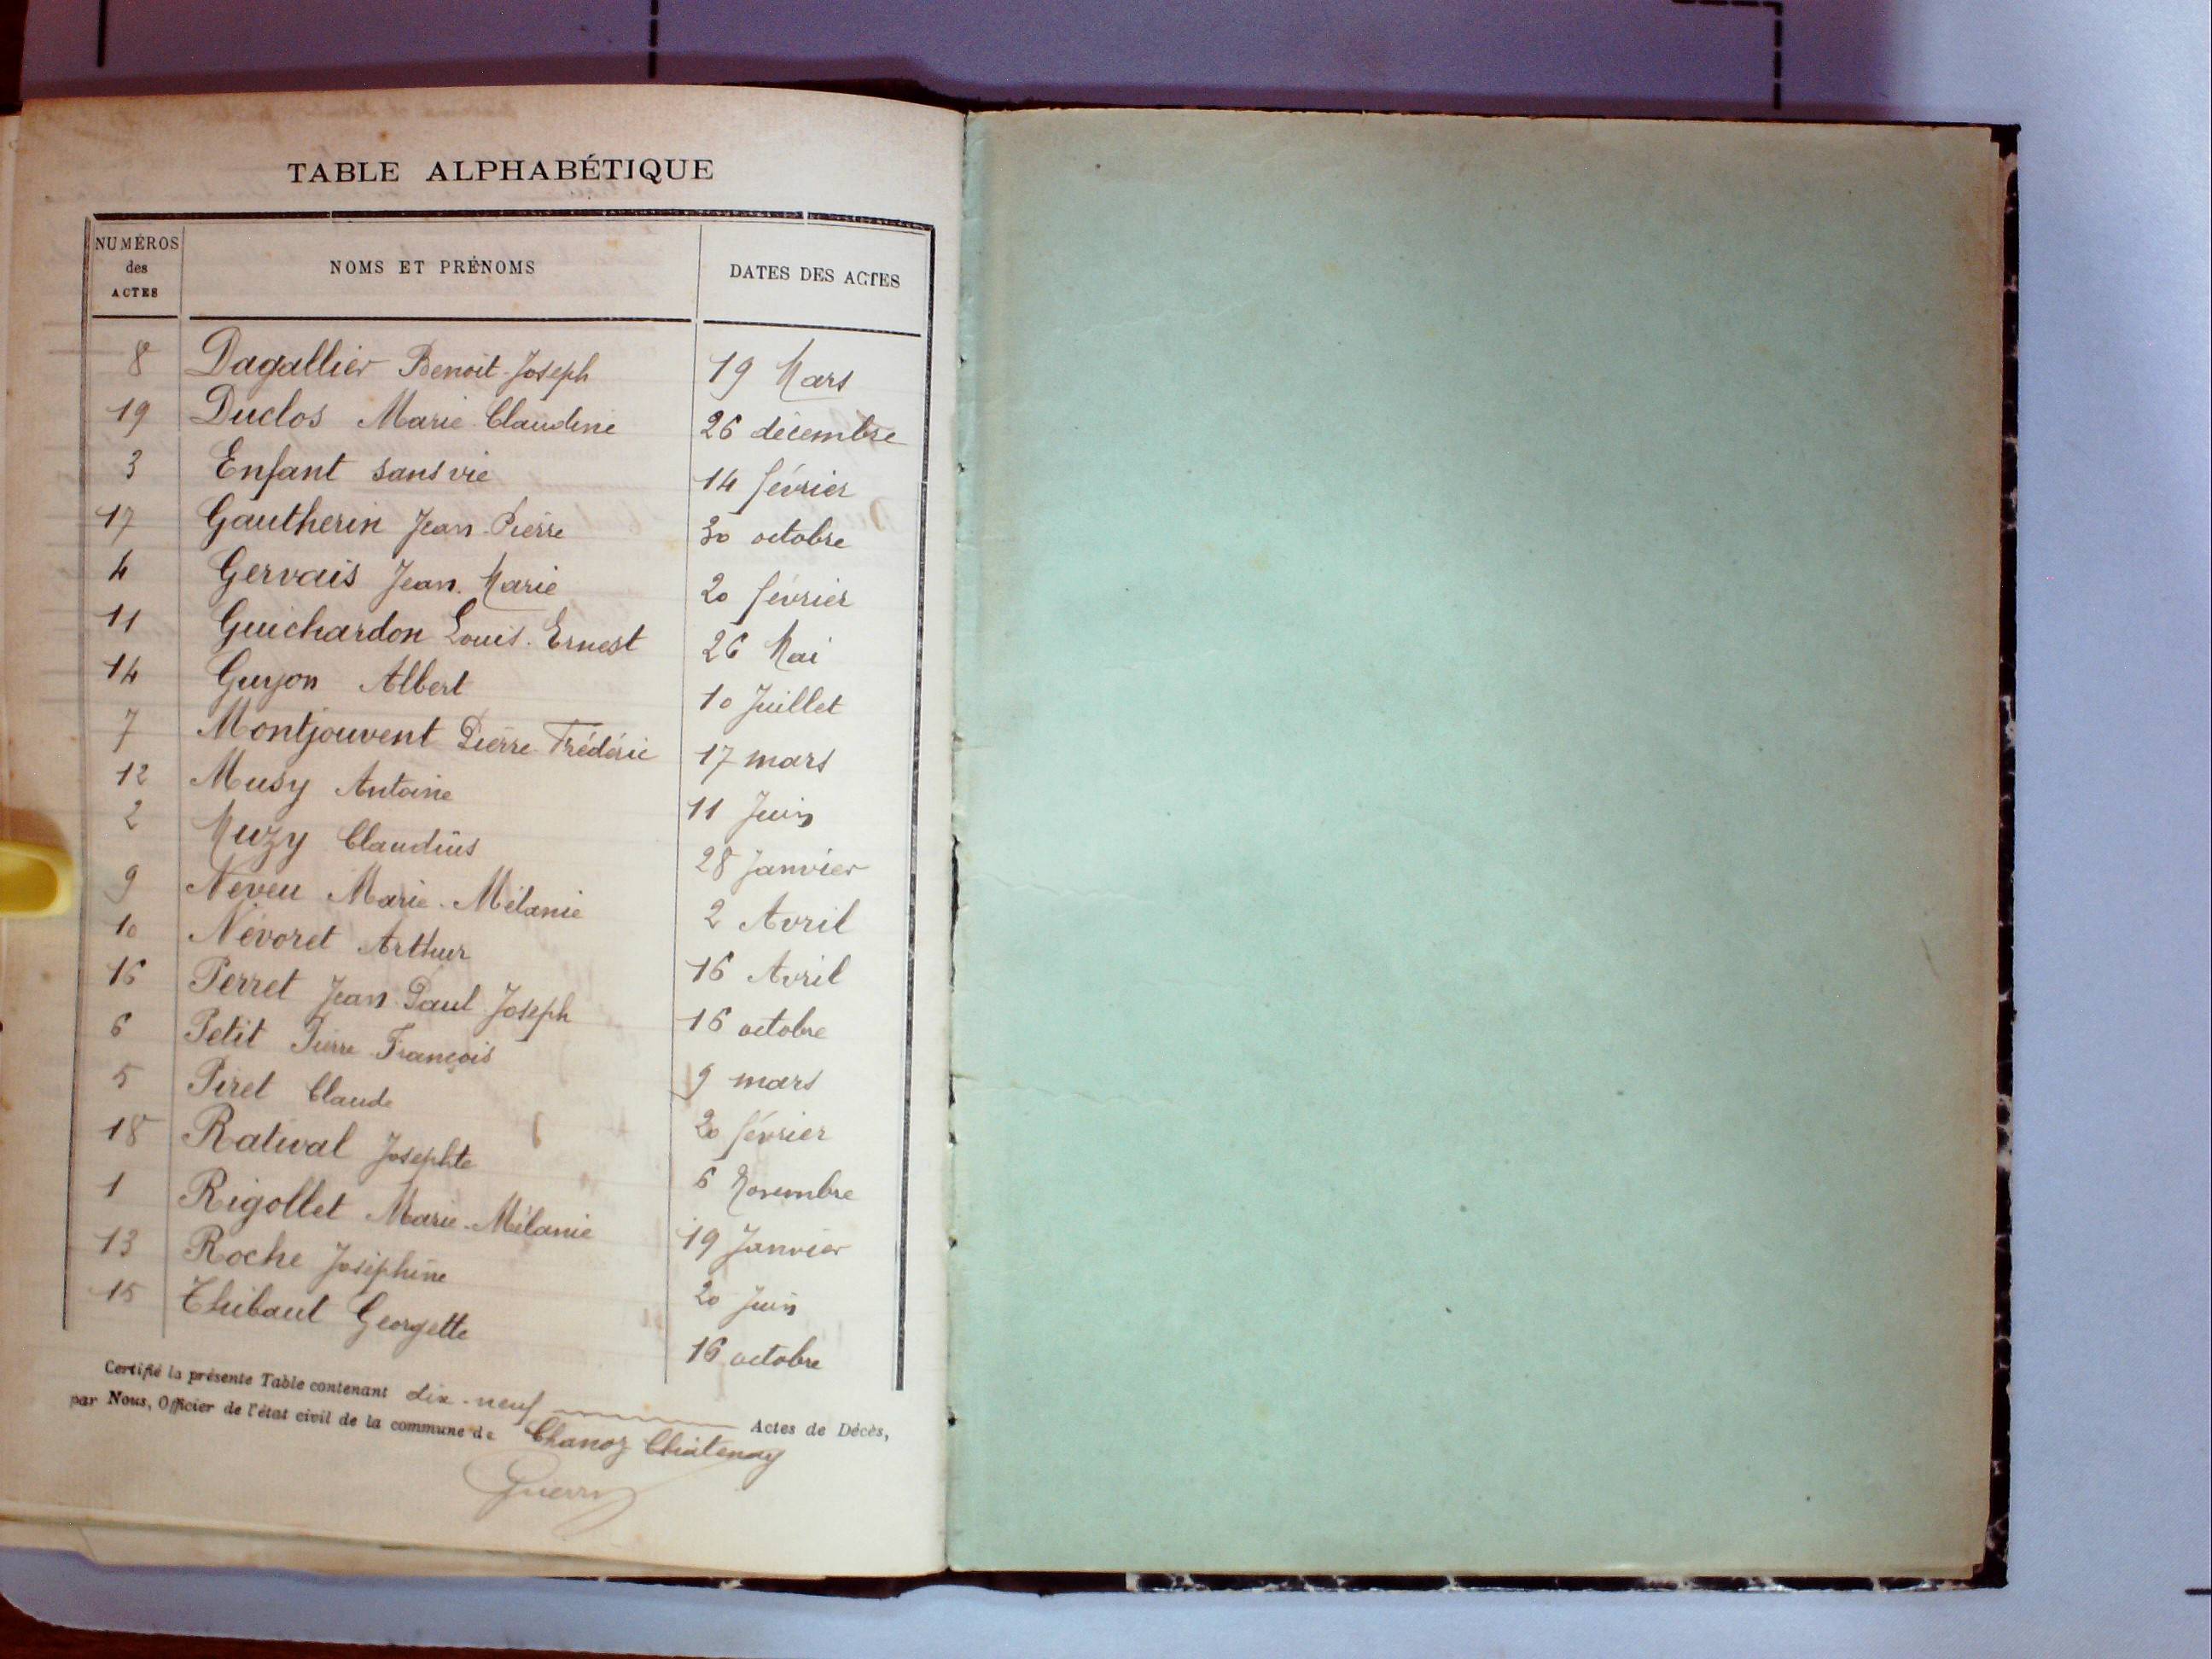 TABLE ALPHABÉTIQUE
NUMÉROS des ACTES NOMS ET PRÉNOMS DATES DES ACTES
8 Dagallier Benoit-Joseph 19 Mars
19 Duclos Marie Claudine 26 décembre
3 Enfant sans vie 14 février
17 Gautherin Jean-Pierre 30 octobre
4 Gervais Jean-Marie 20 février
11 Guichardon Louis-Ernest 26 Mai
14 Guyon Albert 10 Juillet
7 Montjouvent Pierre-Frédéric 17 mars
12 Musy Antoine 11 Juin
2 Muzy Claudius 28 Janvier
9 Neveu Marie-Mélanie 2 Avril
10 Névoret Arthur 16 Avril
16 Perret Jean-Paul-Joseph 16 octobre
6 Petit Pierre-François 9 mars
5 Piret Claude 20 février
18 Josephte 6 Novembre
1 Rigollet Marie-Mélanie 19 Janvier
13 Roche Joséphine 20 Juin
15 Thibaut Georgette 16 octobre
Certifié la présente Table contenant dix-neuf Actes de Décès,
par Nous, Officier de l'état civil de la commune de Chanoz Châtenay